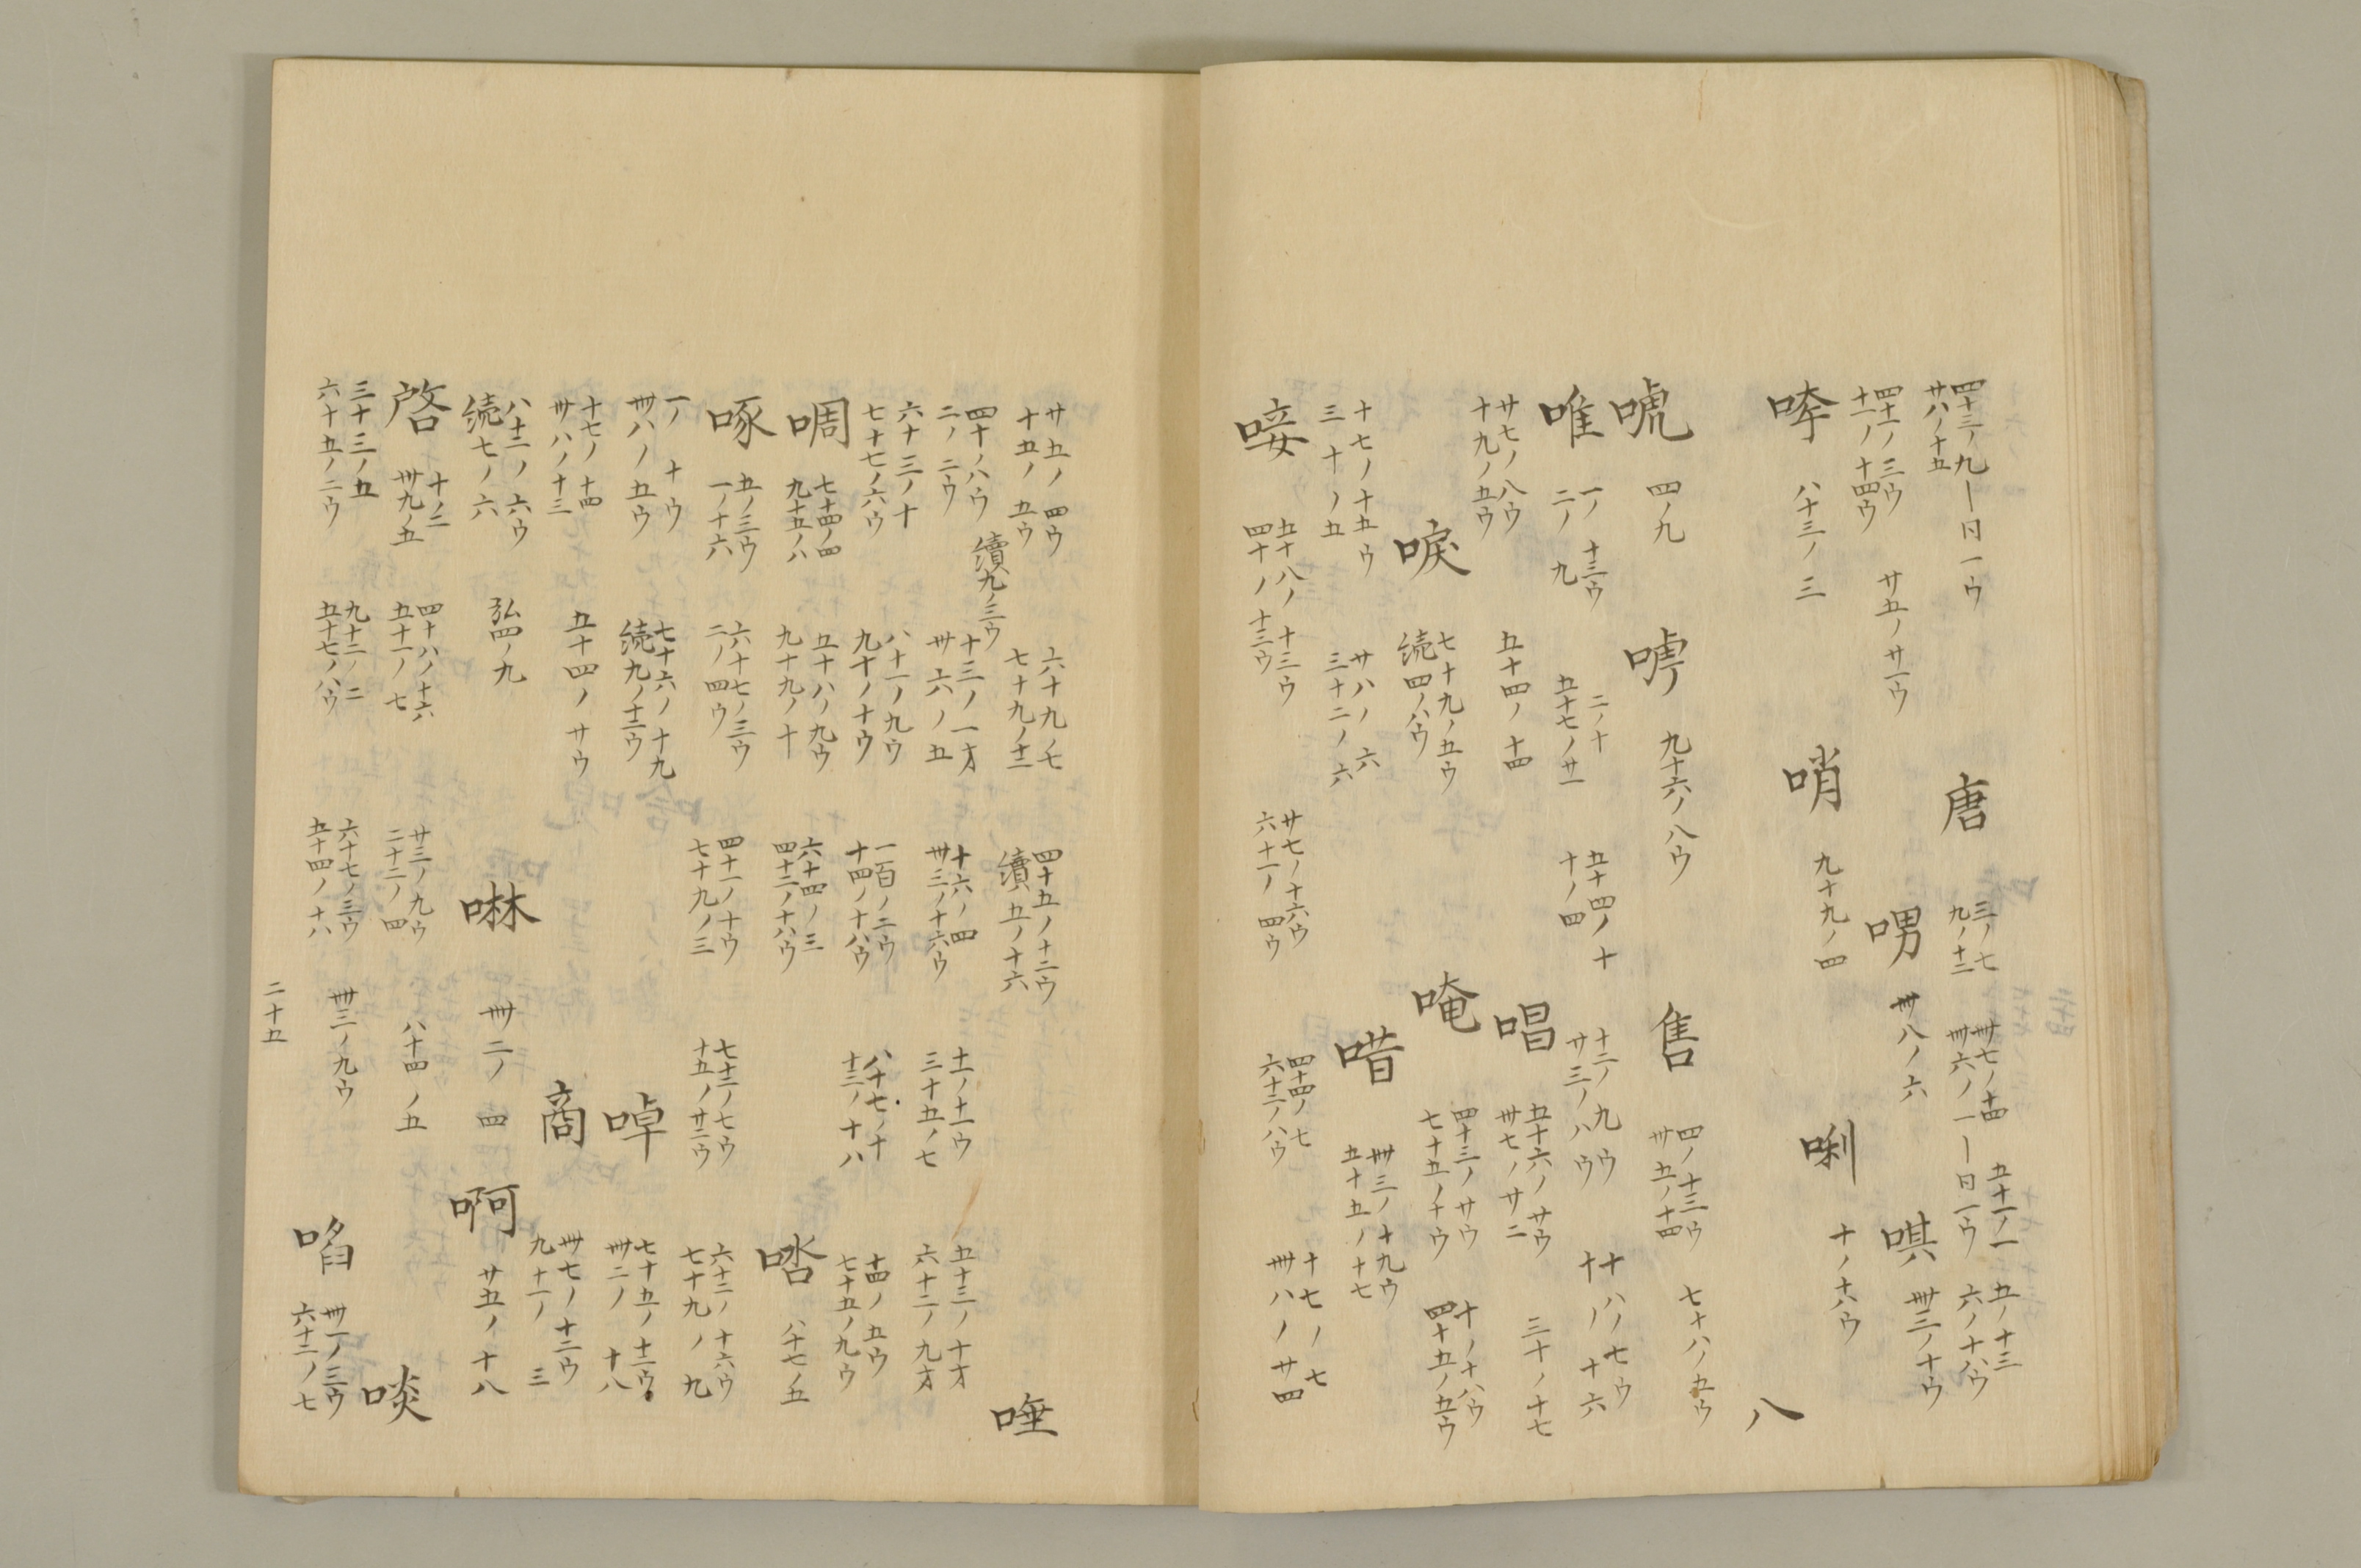 四十三ノ九丨日一ウ
廿八ノ十五
唐
三ノ七
九ノ十二
卅七ノ十四
卌六ノ一丨日一ウ
五十一ノ一
五ノ十三
六ノ十八ウ
四十一ノ三ウ
十一ノ十四ウ
廿五ノ廿一ウ
唽
卌八ノ六
唭
卌三ノ十ウ
哮
八十三ノ三
哨
九十九ノ四
唎
十ノ十六ウ
八
唬
四ノ九
唠
九十六ノ八ウ
售
四ノ十三ウ
卅五ノ十四
七十八ノ五ウ
唯
一ノ十三ウ
二ノ九
二ノ十
五十七ノ廿一
五十四ノ十
十ノ四
十二ノ九ウ
廿三ノ八ウ
十八ノ七ウ
十ノ十六
廿七ノ八ウ
十九ノ五ウ
五十四ノ十四
唱
五十六ノ廿ウ
卅七ノ廿二
三十ノ十七
唳
七十九ノ五ウ
続四ノ八ウ
唵
四十三ノ廿ウ
七十五ノ十ウ
十ノ十八ウ
四十五ノ五ウ
十七ノ十五ウ
三十ノ五
廿八ノ六
三十二ノ六
唶
卌三ノ十九ウ
五十五ノ十七
唼
五十八ノ十三ウ
四十ノ十三ウ
廿七ノ十六ウ
六十一ノ四ウ
四十四ノ七
六十二ノ八ウ
十七ノ七
卌八ノ廿四
廿五ノ四ウ
十五ノ五ウ
六十九ノ七
七十九ノ十二
四十五ノ十二ウ
續五ノ十六
唾
四十ノ八ウ
二ノ二ウ
續九ノ三ウ
十三ノ一才
卅六ノ五
十六ノ四
卌三ノ十六ウ
十一ノ十一ウ
三十五ノ七
五十三ノ十才
六十二ノ九才
六十三ノ十
七十七ノ六ウ
八十一ノ九ウ
九十ノ十ウ
一百ノ二ウ
十四ノ十八ウ
八十七ノ十
十三ノ十八
十四ノ五ウ
七十五ノ九ウ
啁
七十四ノ四
九十五ノ八
五十八ノ九ウ
九十九ノ十
六十四ノ三
四十二ノ十八ウ
啗
八十七ノ五
啄
五ノ三ウ
一ノ十六
六十七ノ三ウ
二ノ四ウ
四十一ノ十ウ
七十九ノ三
七十三ノ七ウ
十五ノ廿二ウ
六十二ノ十六ウ
七十九ノ九
一ノ十ウ
卌八ノ五ウ
七十六ノ十九
続九ノ十二ウ
啅
七十五ノ十二ウ
卌二ノ十八
十七ノ十四
卅八ノ十三
五十四ノ廿ウ
商
卅七ノ十二ウ
九十一ノ三
八十二ノ六ウ
続七ノ六
弘四ノ九
啉
卌二ノ四
啊
廿五ノ十八
啓
十ノ二
卌九ノ五
四十八ノ十六
五十一ノ七
廿三ノ九ウ
二十二ノ四
八十四ノ五
啖
三十三ノ五
六十五ノ二ウ
九十二ノ二
五十七ノ八ウ
六十七ノ三ウ
五十四ノ十八
卌三ノ九ウ
啗
卌一ノ三ウ
六十二ノ七
二十五